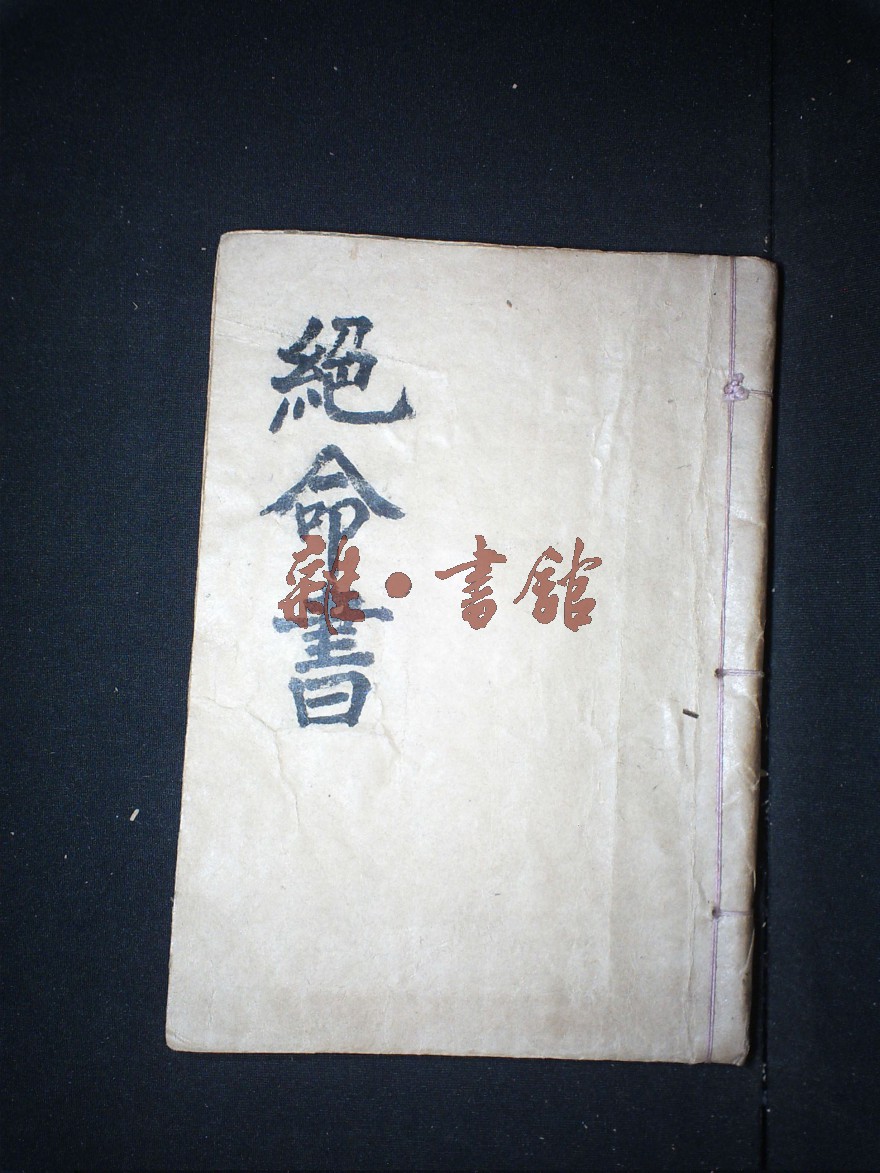 絕命書
雜·書館